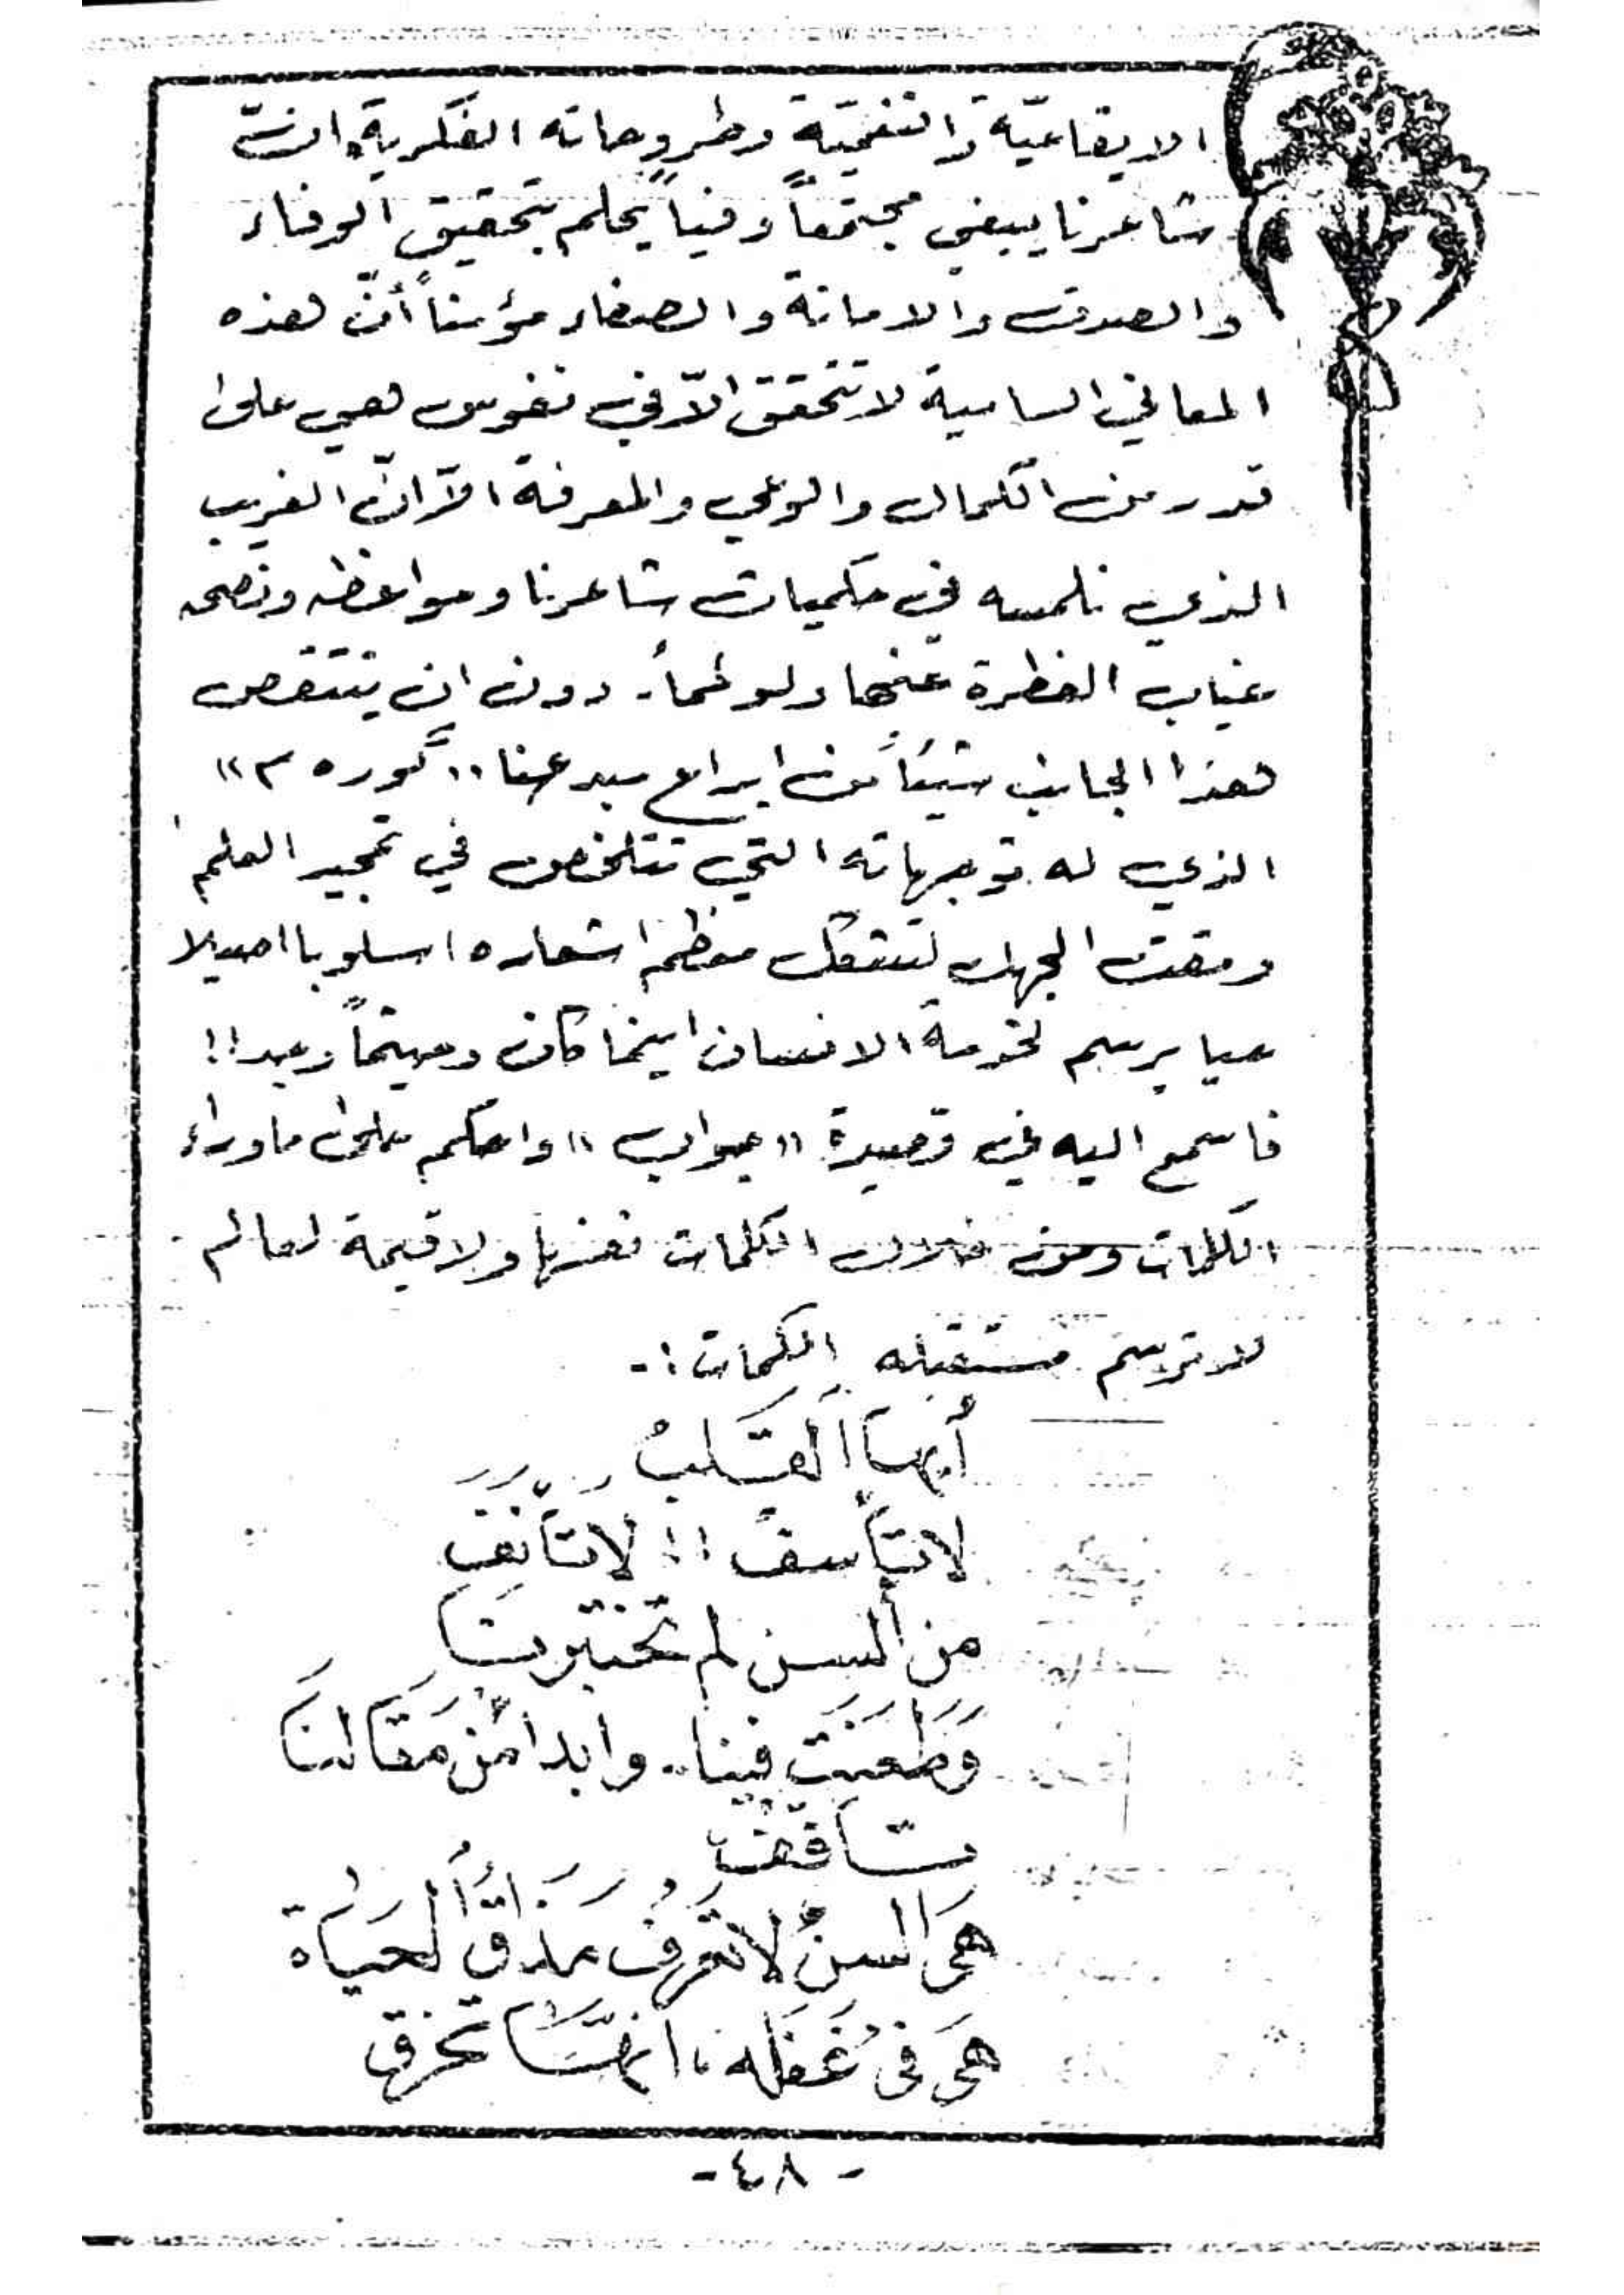 الايقاعيّة والنغميّة وطروحاته الفكرية، انّ
شاعرنا يبغي مجتمعاً وفياً يحلم بتحقيق الوفاء
والصدق والامانة والصفاء مؤمناً أنّ هذه
المعاني السامية لا تتحقق الاّ في نفوس هي على
قدر من الكمال والوعي والمعرفة الاّ انّ الغريب
الذي نلمسه في حكميات شاعرنا ومواعظه ونصحه
غياب الفطرة عنها ولو لمأ. دون ان ينتقص
هذا الجانب شيئاً من ابداع مبدعنا «گوره م»
الذي له توجهاته التي تتلخص في تمجيد العلم
ومقت الجهل لتشكل معظم اشعاره اسلوبا اصيلا
يرسم لخدمة الانسان اينما كان وحيثما وجد!!
فاسمع اليه في قصيدة «جواب» واحكم على ماوراء
الكلمات ومن خلال الكلمات نفسها ولا قيمة لعالم
لا ترسم مستقبله الكلمات :-
أيها القَلبُ
لا تَأسفْ !! لا تَأنَفْ
من ألسن لم تختبرنا
وَطَعَنَت فينا.. وابدا من مَقَالنَا
هيَ السنٌ لا تَعرفُ مذاقَ الحَياة
هيَ في غَفلَه، انهَّا تخرق
- ٤٨ -